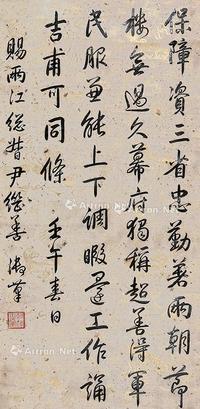 保障資三省忠勤著兩朝節
樓無過久幕府獨稱超善得軍
民服兼能上下調暇還工作誦
吉甫可同條 壬午春日
賜兩江總督尹繼善 御筆
Artron.Net